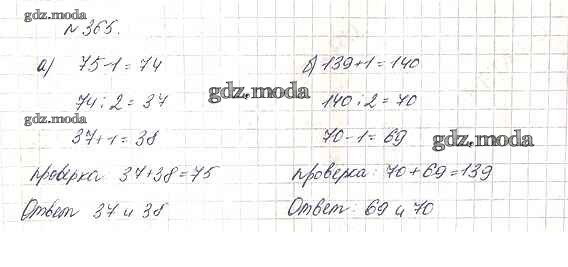 gdz.moda
№ 365.
а) 75-1 = 74
74 : 2 = 37
gdz.moda
37+1 = 38
проверка 37+38 = 75
Ответ 37 и 38
б) 139+1 = 140
gdz.moda
140 : 2 = 70
70-1 = 69
gdz.moda
проверка: 70+69 = 139
Ответ: 69 и 70